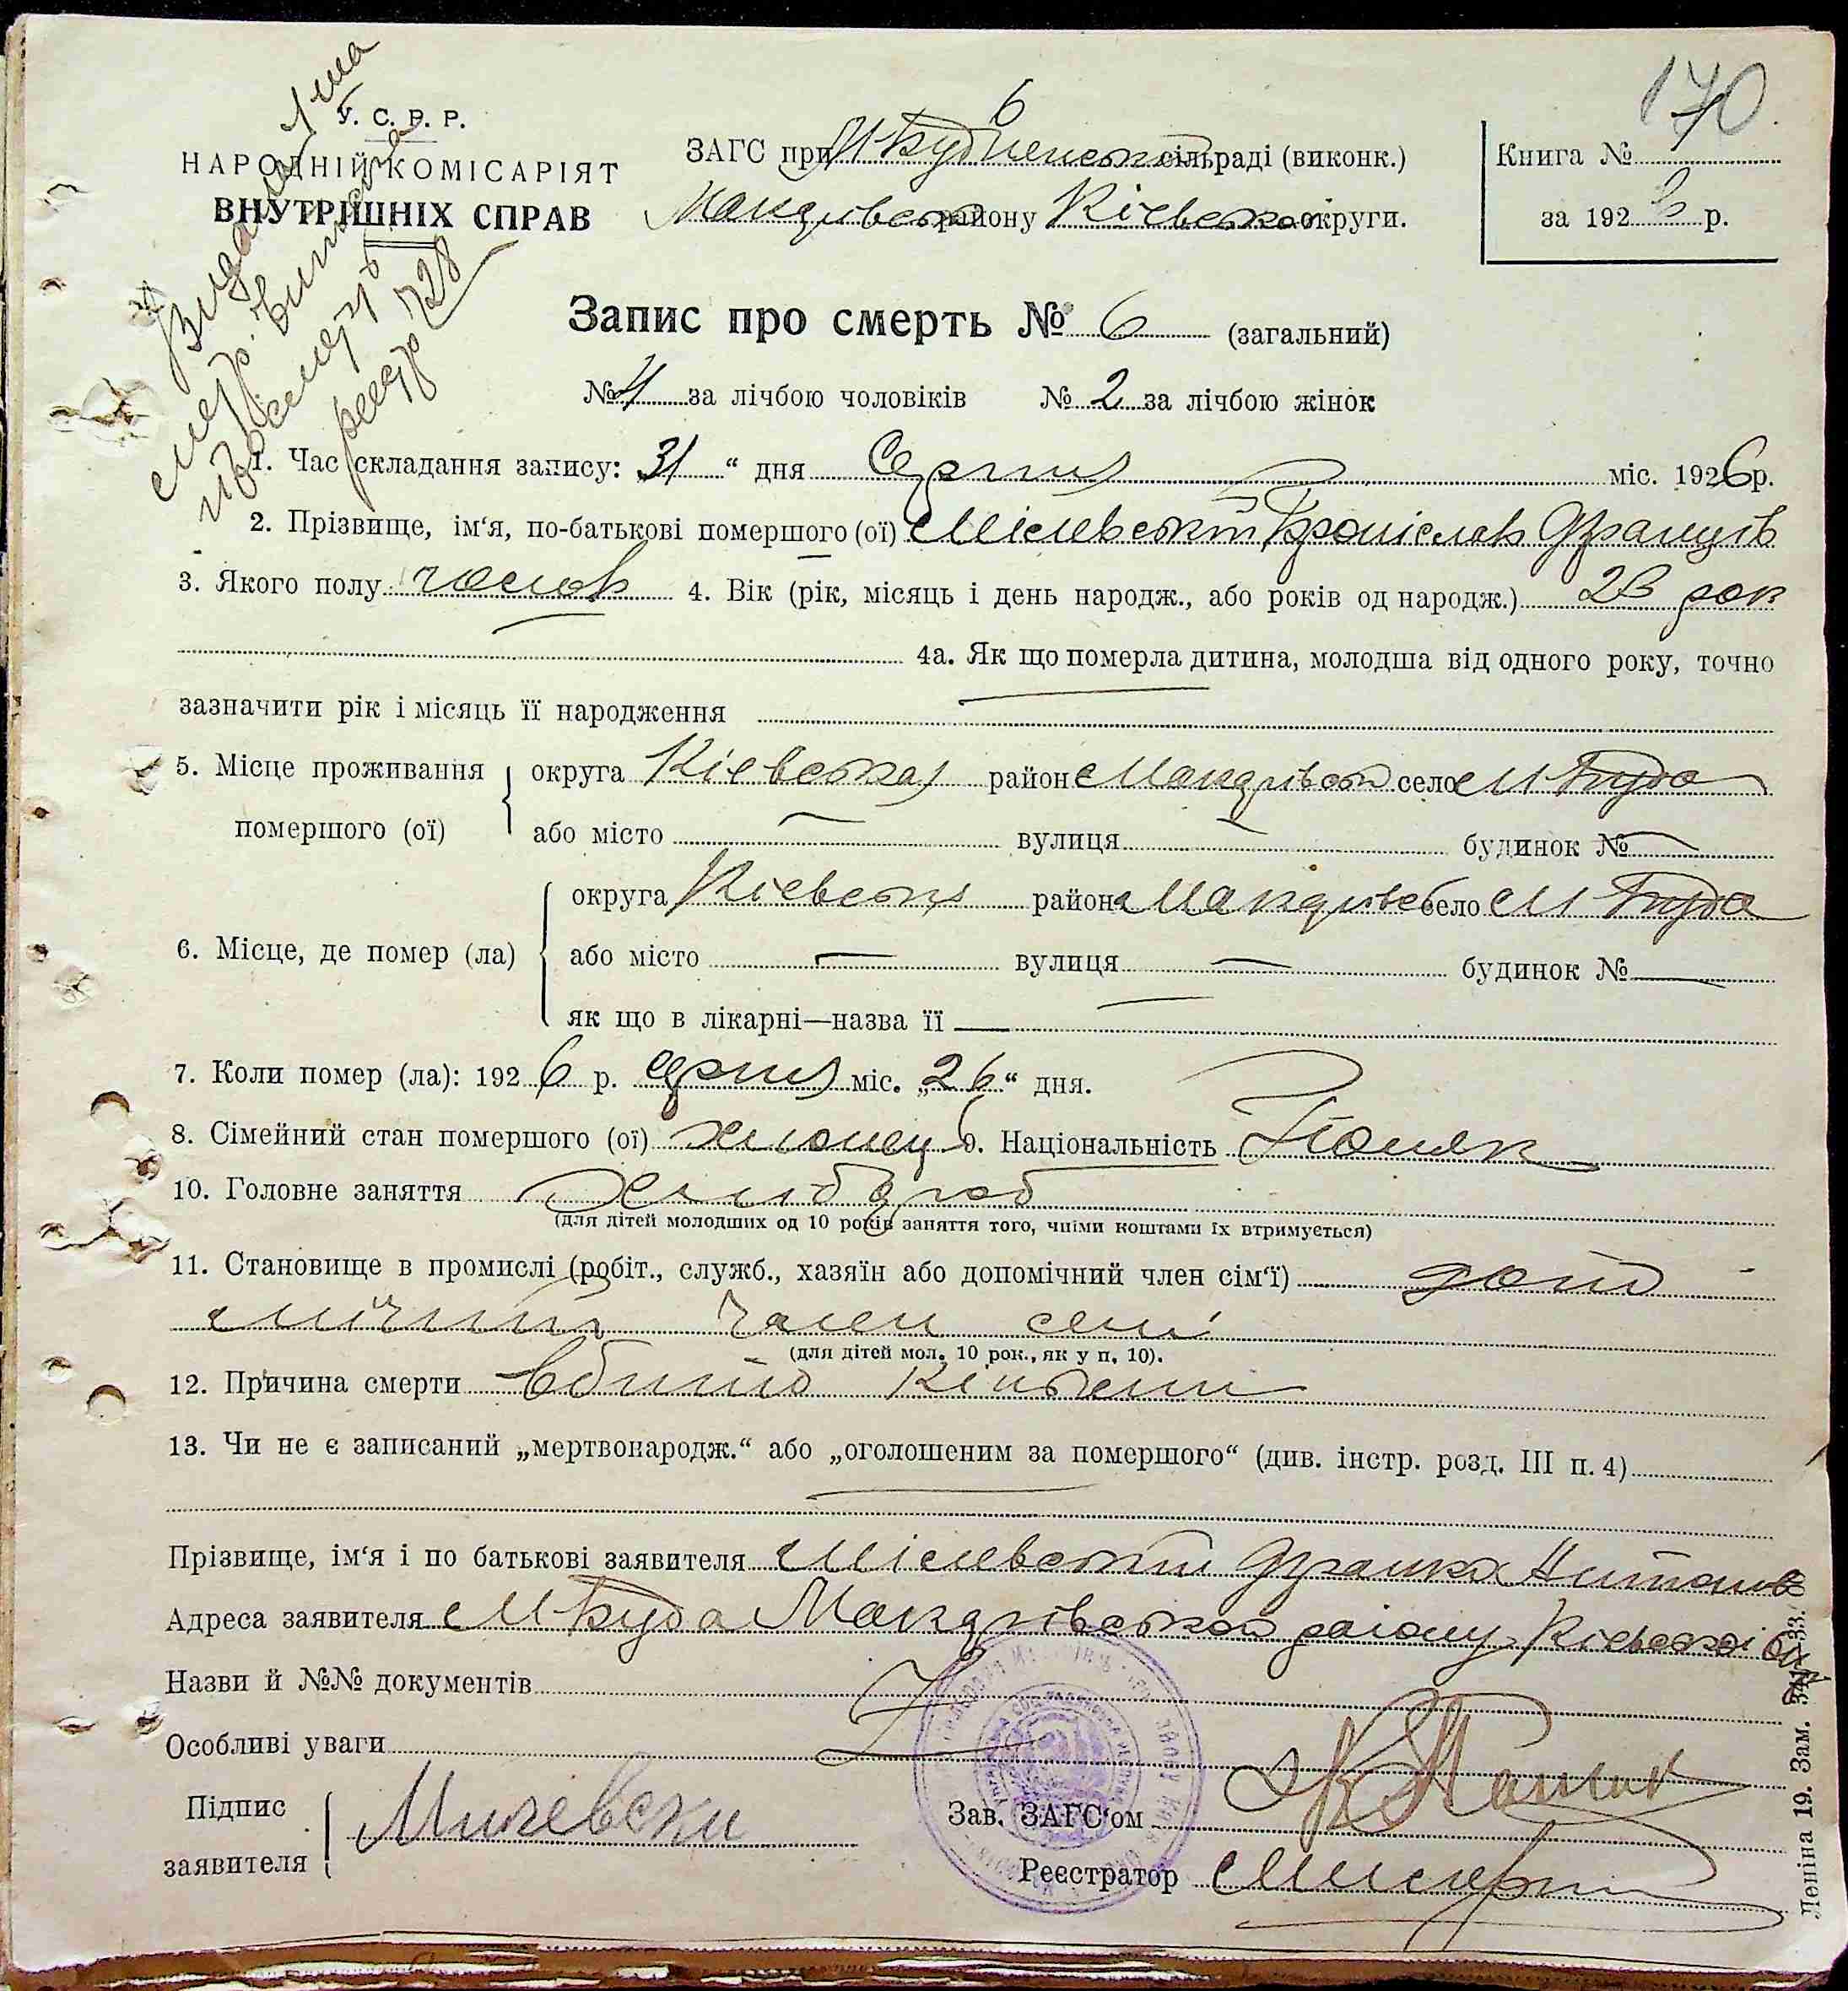 170
У. С. Р. Р.
НАРОДНІЙ КОМІСАРІЯТ
ВНУТРІШНІХ СПРАВ
ЗАГС при М Будиенськ сільраді (виконк.)
Макарівськ району Кіевської округи.
Книга №
за 1926 р.
Запис про смерть № 6 (загальний)
№ 4 за лічбою чоловіків № 2 за лічбою жінок
1. Час складання запису: 31 “ дня Серпня міс. 1926 р.
2. Прізвище, ім‘я, по-батькові помершого (ої) Мілевський Броніслав Франців
3. Якого полу чолов 4. Вік (рік, місяць і день народж., або років од народж.) 23 рок
4а. Як що померла дитина, молодша від одного року, точно
зазначити рік і місяць її народження
5. Місце проживання помершого (ої) округа Кіевська район Макарівськ село М Буда
або місто — вулиця — будинок № —
6. Місце, де помер (ла) округа Кіевська район Макарівсь село М Буда
або місто — вулиця — будинок № —
як що в лікарні—назва її —
7. Коли помер (ла): 1926 р. серпня міс. „26“ дня.
8. Сімейний стан помершого (ої) хлопець 9. Національність Поляк
10. Головне заняття Хлібороб
(для дітей молодших од 10 років заняття того, чиїми коштами їх втримується)
11. Становище в промислі (робіт., служб., хазяїн або допомічний член сім‘ї) допо-
мічний член семі
(для дітей мол. 10 рок., як у п. 10).
12. Причина смерти Вбито
13. Чи не є записаний „мертвонародж.“ або „оголошеним за помершого“ (див. інстр. розд. III п. 4)
Прізвище, ім‘я і по батькові заявителя Мілевський Франка Антонов
Адреса заявителя М Буда Макарівського району Кіевської Окр
Назви й №№ документів
Особливі уваги
Підпис заявителя Милевски
Зав. ЗАГС‘ом
Реєстратор
Леніна 19. Зам.